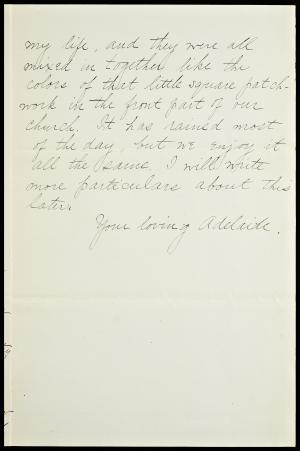 my life, and they were all
mixed in together like the
colors of that little square patch-
work in the front part of our
church. It has rained most
of the day, but we enjoy it
all the same. I will write
more particulars about this
later.
Your loving Adelaide.